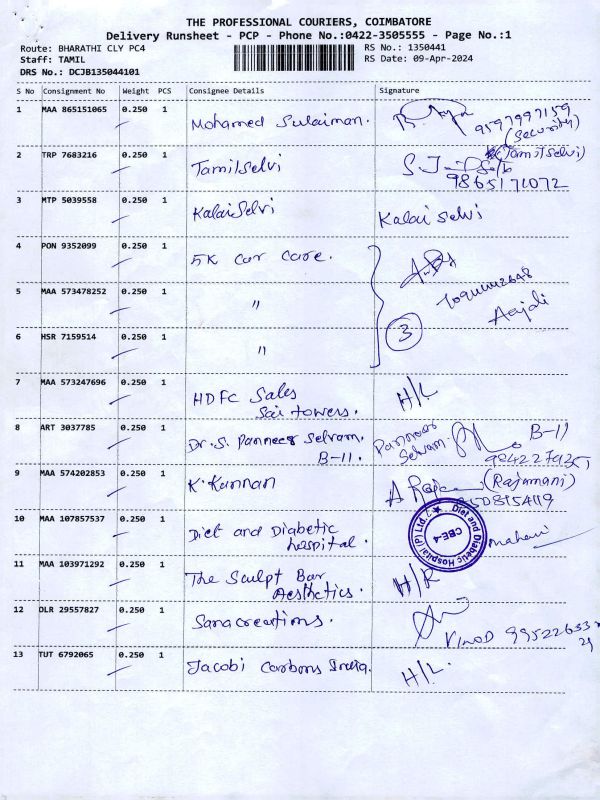 THE PROFESSIONAL COURIERS, COIMBATORE
Delivery Runsheet - PCP - Phone No.:0422-3505555 - Page No.:1
Route: BHARATHI CLY PC4 RS No.: 1350441
Staff: TAMIL RS Date: 09-Apr-2024
DRS No.: DCJB135044101
S No Consignment No Weight PCS Consignee Details Signature
1 MAA 865151065 0.250 1 Mohamed Sulaiman. 9597997159
(Security)
2 TRP 7683216 0.250 1 TamilSelvi S.J (TamilSelvi)
9865171072
3 MTP 5039558 0.250 1 KalaiSelvi Kalai Selvi
4 PON 9352099 0.250 1 5K Car Care.
5 MAA 573478252 0.250 1 "
Aanjali
6 HSR 7159514 0.250 1 " 3
7 MAA 573247696 0.250 1 HDFC Sales H/L
Sai towers.
8 ART 3037785 0.250 1 Dr. S. Panneer Selvam. Panneer Selvam. B-11
B-11.
9 MAA 574202853 0.250 1 K. Kannan (Rajamani)
10 MAA 107857537 0.250 1 Diet and Diabetic Diet and Diabetic Hospital (P) Ltd. CBE-4
hospital.
11 MAA 103971292 0.250 1 The Sculpt Bar H/R
Aesthetics.
12 DLR 29557827 0.250 1 Sanacreations.
VINOD 99522633
13 TUT 6792065 0.250 1 Jacobi Carbons India. H/L.